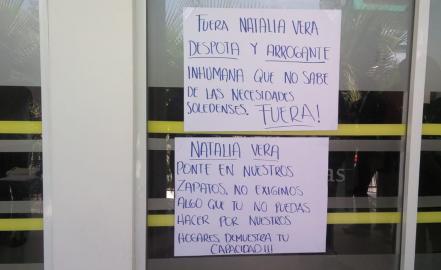 FUERA NATALIA VERA
DESPOTA Y ARROGANTE
INHUMANA QUE NO SABE
DE LAS NECESIDADES
SOLEDENSES. FUERA!
NATALIA VERA
PONTE EN NUESTROS
ZAPATOS. NO EXIGIMOS
ALGO QUE TU NO PUEDAS
HACER POR NUESTROS
HOGARES, DEMUESTRA TU
CAPACIDAD!!!